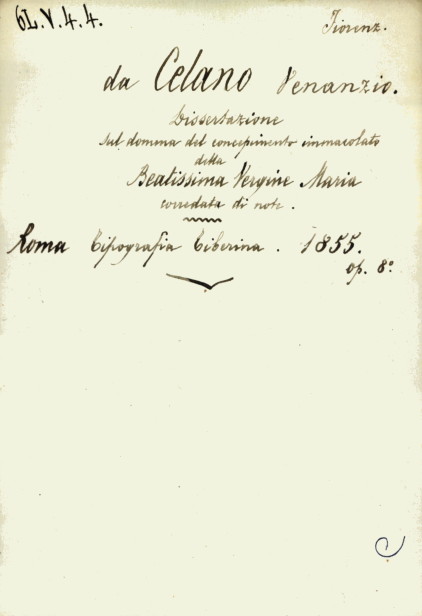 6L.V.4.4.
Fiorenz.
da Celano Venanzio.
Dissertazione
sul domma del concepimento immacolato
della
Beatissima Vergine Maria
corredata di note.
Roma Tipografia Tiberina. 1855.
op. 8°